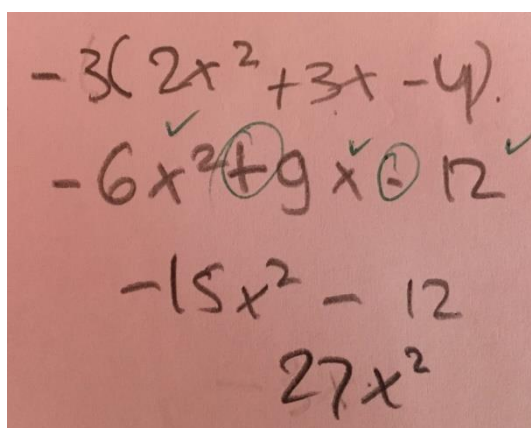 -3(2x² +3x -4).
-6x² + 9x - 12
-15x² - 12
27x²